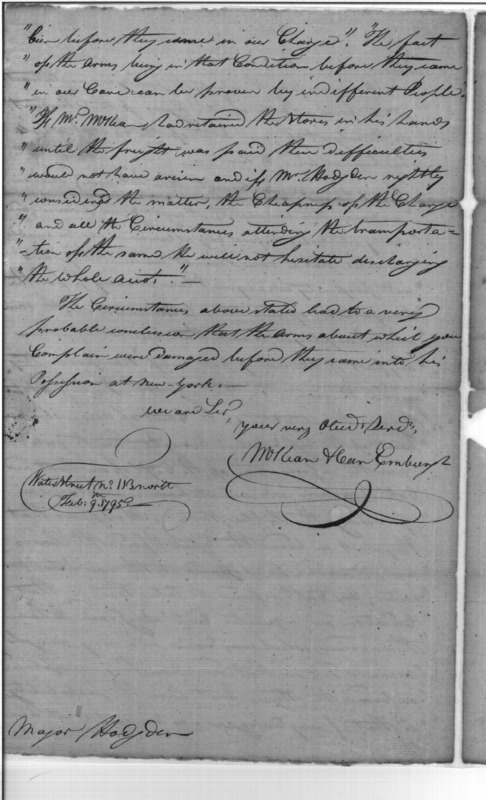 "been before they came in our Charge". "The fact
"of the Arms being in that Condition before they came
"in our Care can be proven by indifferent People.
"If Mr. McKean had retained the Stores in his hands
"until the freight was paid then difficulties
"would not have arisen and if Mr. Hodgden rightly
"considered the matter, the Cheapness of the Charge
"and all the Circumstances attending the transporta=
"-tion of the same he will not hesitate discharging
"the whole acct." —
The Circumstances above stated lead to a very
probable conclusion that the Arms about which you
Complain were damaged before they came into his
Possession at New-York. —
We are Sir,
your very Obedt. Servts,
McKean & Van Emburgh
Water Street No. 113 north
Feb: 9th 1795
Major Hodgden